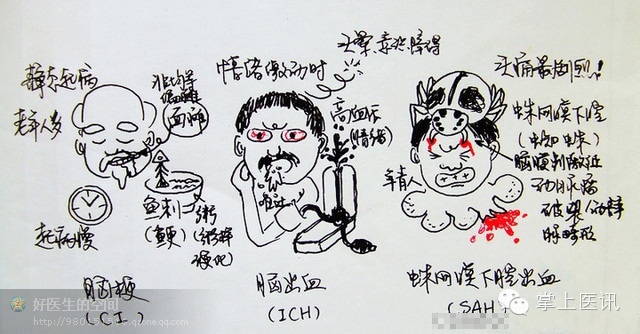 静态起病
老年人多
起病慢
血滩
鱼刺=粥
(鲠)
(粥样
硬化)
脑梗
(C.I.)
情绪激动时
头晕、意识障碍
高血压
(情绪)
呕吐
脑出血
(ICH)
头痛最剧烈!
蛛网膜下腔
(蜘蛛)
脑膜刺激征
年青人
动脉瘤
破裂
脉畸形
蛛网膜下腔出血
(SAH)
好医生的空间
掌上医讯